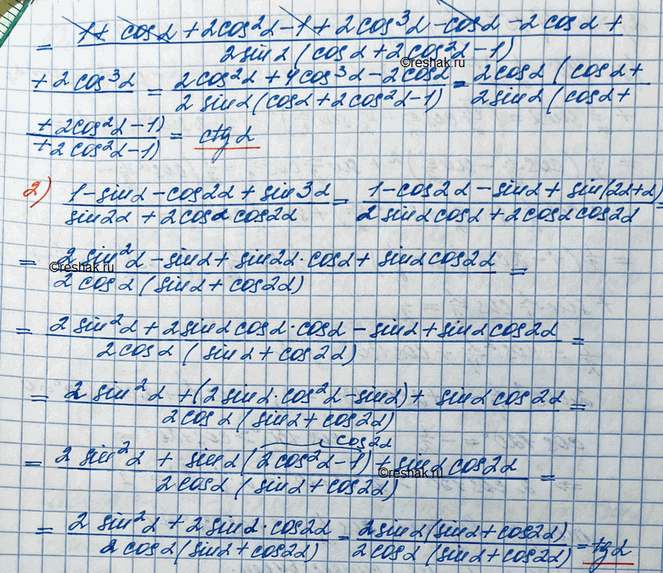 = (1 + cosα + 2cos²α - 1 + 2cos³α - cosα - 2cosα +) / (2sinα (cosα + 2cos²α - 1))
©reshak.ru
(+ 2cos³α) / = (2cos²α + 4cos³α - 2cosα) / (2sinα (cosα + 2cos²α - 1)) = (2cosα (cosα +) / (2sinα (cosα +)
(+ 2cos²α - 1)) / (+ 2cos²α - 1)) = ctgα
2) (1 - sinα - cos2α + sin3α) / (sin2α + 2cosα cos2α) = (1 - cos2α - sinα + sin(2α+α)) / (2sinαcosα + 2cosαcos2α) =
= (2sin²α - sinα + sin2α·cosα + sinαcos2α) / (2cosα (sinα + cos2α)) =
©reshak.ru
= (2sin²α + 2sinαcosα·cosα - sinα + sinαcos2α) / (2cosα (sinα + cos2α)) =
= (2sin²α + (2sinα·cos²α - sinα) + sinαcos2α) / (2cosα (sinα + cos2α)) =
cos2α
= (2sin²α + sinα (2cos²α - 1) + sinαcos2α) / (2cosα (sinα + cos2α)) =
©reshak.ru
= (2sin²α + 2sinα·cos2α) / (2cosα (sinα + cos2α)) = (2sinα (sinα + cos2α)) / (2cosα (sinα + cos2α)) = tgα